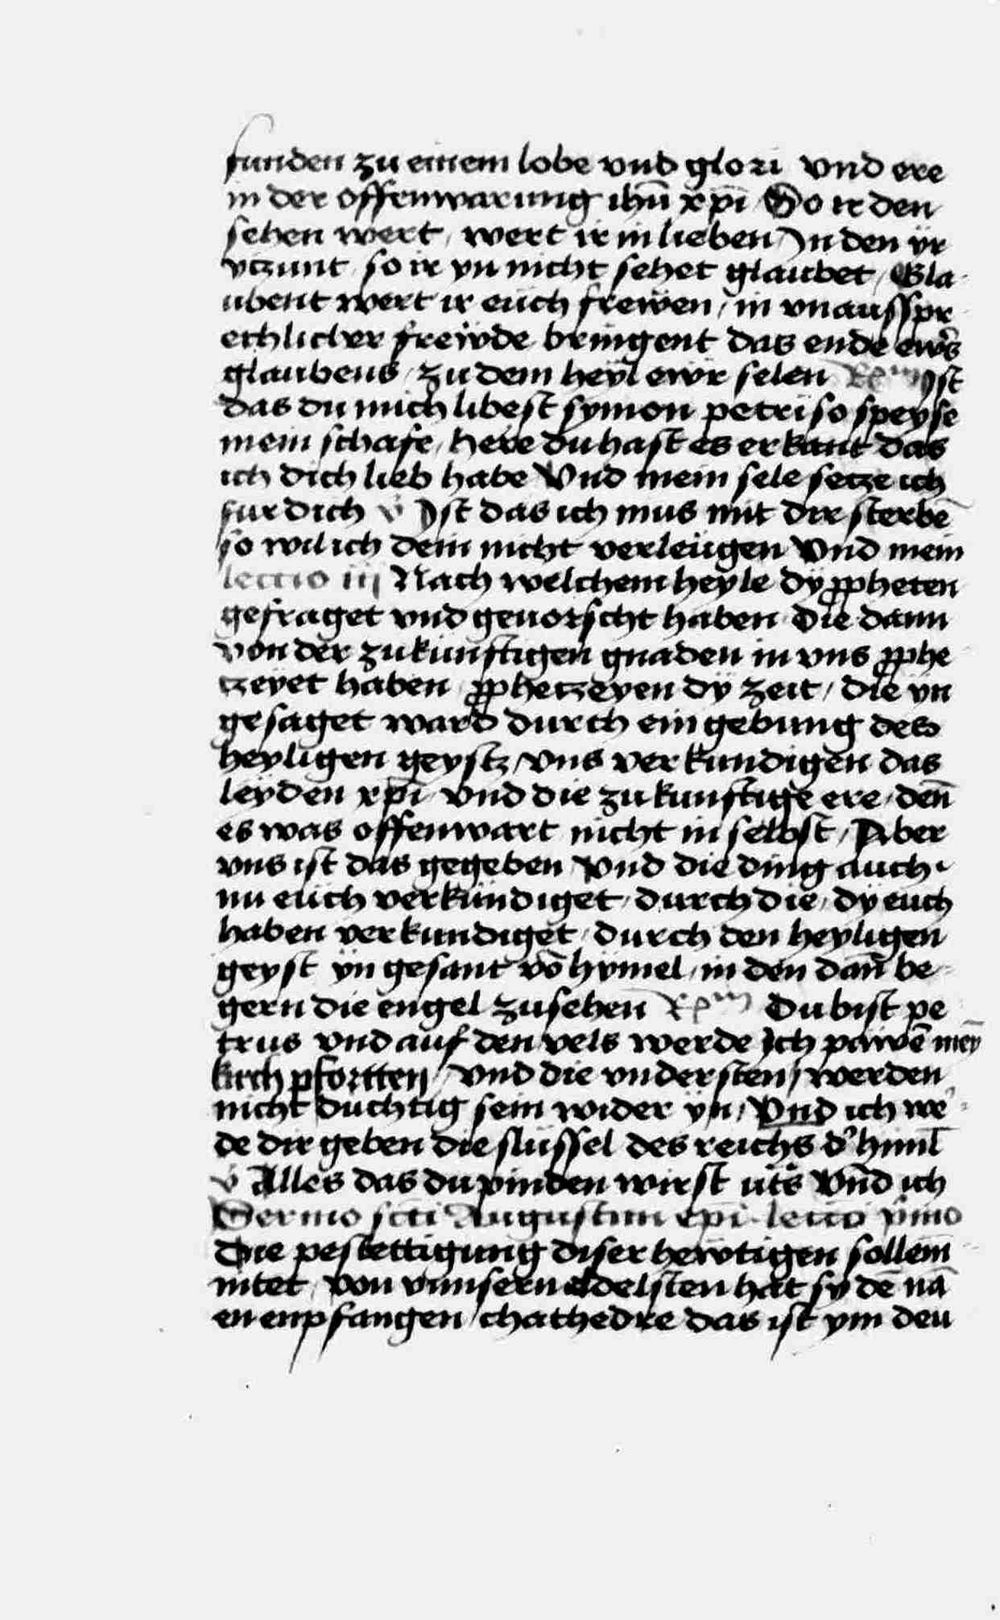 funden zu einem lobe vnd glori vnd ere
in der offenwarung ihū xp̄i / So ir den
sehen wert / wert ir in lieben / In den yr
ytzunt so ir yn nicht sehet glaubet / Gla
ubent wert ir euch frewen / in vnausspr
echlicher freẅde bringent das ende ewr̄s
glaubens / zu dem heyl ewr selen Rm̄ Ist
das du mich libest symon petri so speyse
mein schafe / here du hast es erkant das
ich dich lieb habe Vnd mein sele setze ich
fur dich v̄ Ist das ich mus mit dir sterbē
so wil ich dein nicht verleügen Vnd mein
lectio iij Nach welchem heyle dy ꝓpheten
gefraget vnd geuorscht haben Die dann
von der zukünftigen gnaden in vns ꝓphe
tzeyet haben ꝓphetzeyen dÿ zeit / die yn
gesaget ward durch ein gebung des
heyligen geystz / vns verkundigen das
leyden xp̄i vnd die zukunftige ere / den̄
es was offenwart nicht in selbst / Aber
vns ist das gegeben Vnd die ding auch
nu euch verkündiget / durch die / dy euch
haben verkundiget / durch den heyligen
geyst yn gesant vō hymel / in den dan̄ be
gern die engel zusehen Rm̄ Du bist pe
trus vnd auf den vels werde Ich pawē meȳ
kirch pfortten / Vnd die vndersten / werden
nicht duchtig sein wider yn / Vnd ich we
de dir geben die slüssel des reichs d' himl̄
v̄ Alles das du pinden wirst ut̄s Vnd ich
Sermo sc̄ti Augustini ep̄i lectio p̄mo
Die pestettigung diser hewtigen sollem
nitet / von vnnsern edelsten hat sy dē nā
en enpfangen / chathedre das ist ym deu